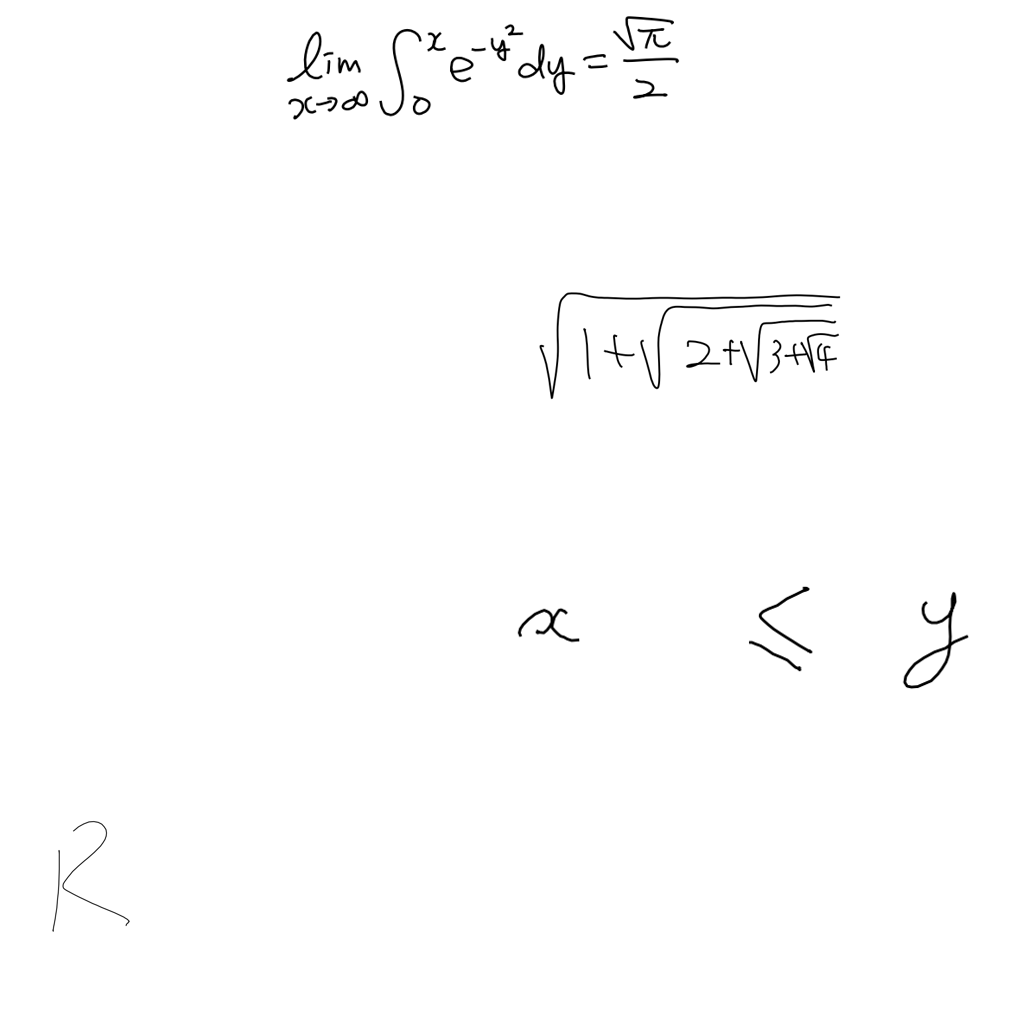 \lim_{x \to \infty} \int_0^x e^{-y^2} dy = \frac{\sqrt{\pi}}{2}
\sqrt{1+\sqrt{2+\sqrt{3+\sqrt{4}}}}
x ≤ y
R